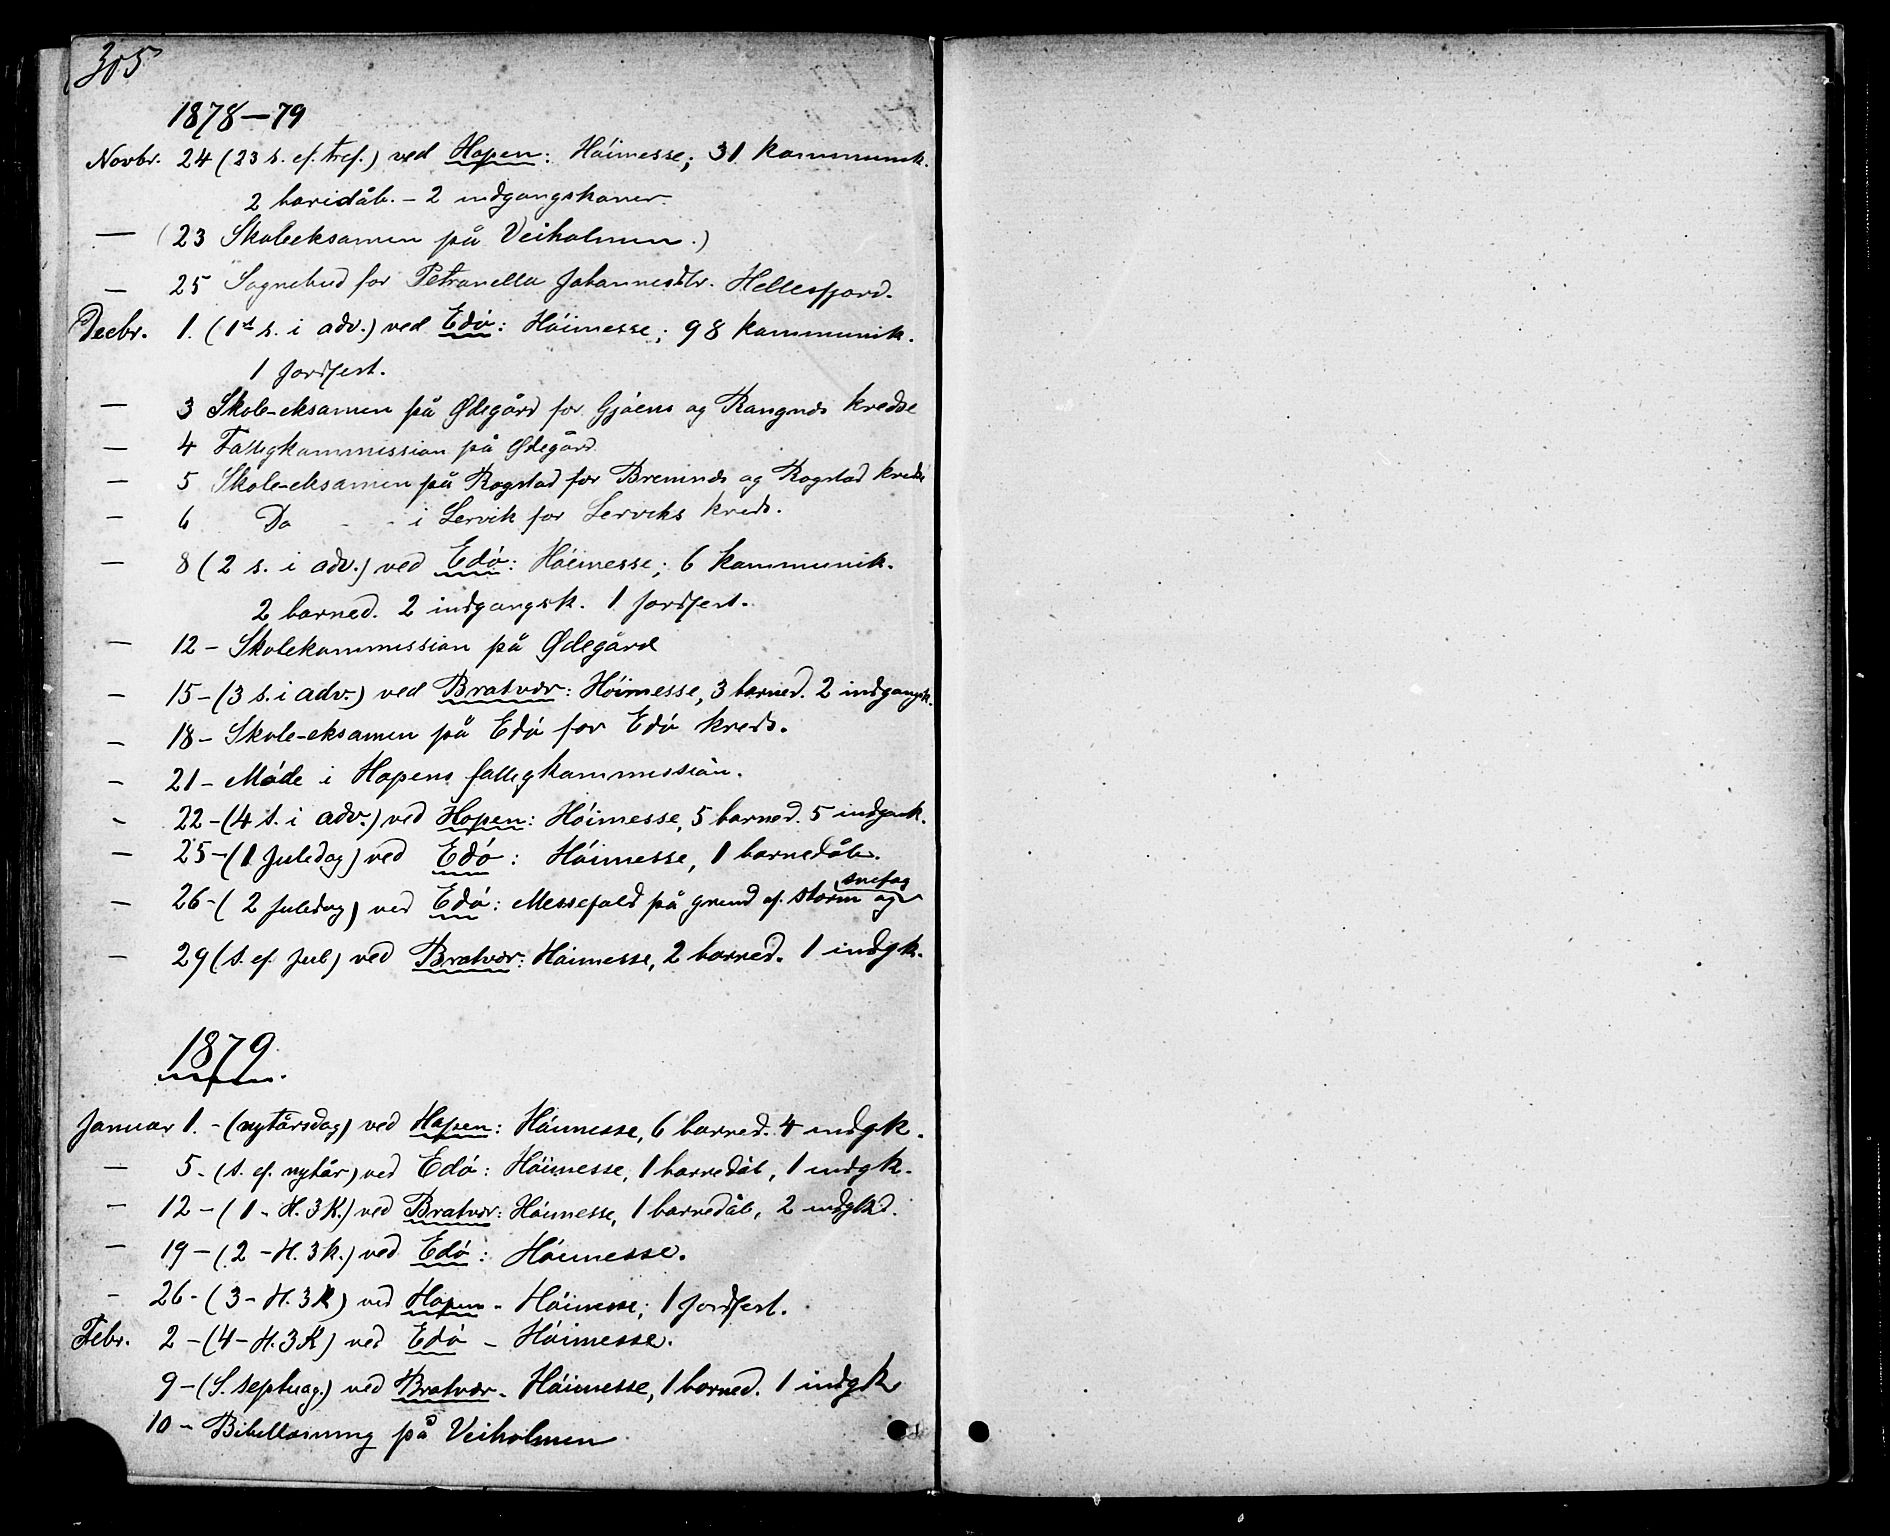 305
1878-79
Novbr. 24 (23 s. ef. tref.) ved Hopen: Hóimesse; 31 kommunik.
2 baridåb. - 2 indgangskoner.
— (23 Skoleeksamen på Veiholmen.)
— 25 Sognebud for Petronella Johannesdtr. Hellesfjord.
Decbr. 1. (1ste s. i adv.) ved Edó: Hóimesse; 98 kommunik.
1 jordfest.
— 3 Skole-eksamen på Ødegård for Gjóens og Rangnæs kredse
— 4 Fattigkommission på Ødegård.
— 5 Skole-eksamen på Rogstad for Bremnæs og Rogstad kredse
— 6 Do - - i Lervik for Lerviks kreds.
— 8 (2 s. i adv.) ved Edó: Hóimesse; 6 kommunik.
2 barned. 2 indgangsk. 1 jordfest.
— 12 - Skolekommission på Ødegård
— 15 - (3 s. i adv.) ved Bratvær: Hóimesse, 3 barned. 2 indgangsk.
— 18 - Skole-eksamen på Edó for Edó kreds.
— 21 - Møde i Hopens fattigkommission.
— 22 - (4 s. i adv.) ved Hopen: Hóimesse, 5 barned. 5 indgask.
— 25 - (1 Juledag) ved Edó: Hóimesse, 1 barnedåb.
— 26 - (2 Juledag) ved Edó: Messefald på grund af storm og snefog
— 29 (s. ef. Jul) ved Bratvær: Hóimesse, 2 barned. 1 indgk.
1879.
Januar 1. - (nytårsdag) ved Hopen: Hóimesse, 6 barned. 4 indgk.
— 5. (s. ef. nytår) ved Edó: Hóimesse, 1 barnedåb, 1 indgk.
— 12 - (1 - H. 3 K.) ved Bratvær: Hóimesse, 1 barnedåb, 2 indgkd.
— 19 - (2 - H. 3 k.) ved Edó: Hóimesse.
— 26 - (3 - H. 3 K) ved Hopen - Hóimesse; 1 jordfest.
Febr. 2 - (4 - H. 3 K) ved Edó - Hóimesse.
9 - (S. septuag.) ved Bratvær - Hóimesse, 1 barned. 1 indgk
10 - Bibellæsning på Veiholmen